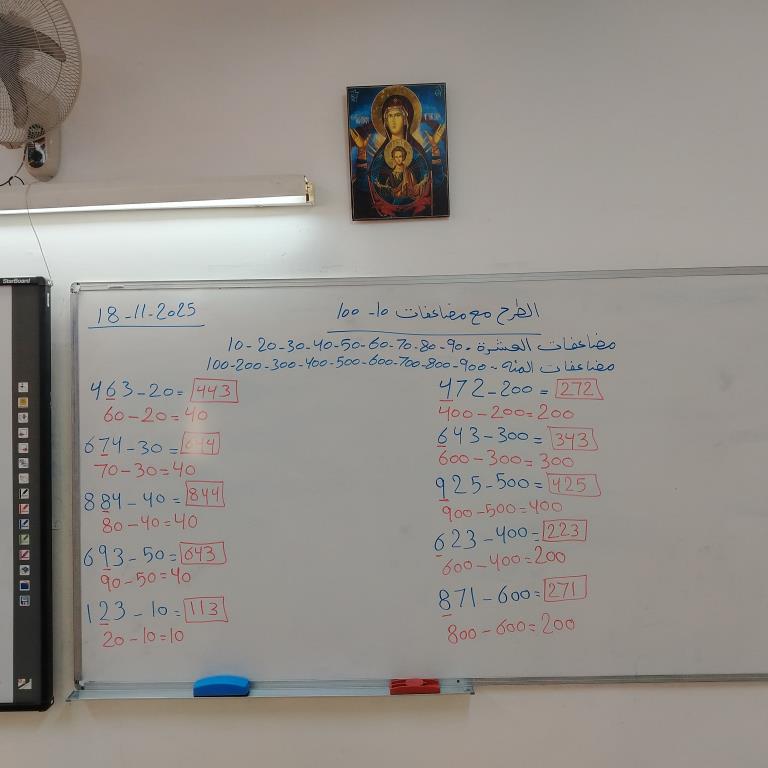 StarBoard
18-11-2025
الطرح مع مضاعفات 10- 100
مضاعفات العشرة - 10-20-30-40-50-60-70-80-90
مضاعفات المئة - 100-200-300-400-500-600-700-800-900
463-20= 443
60-20=40
674-30= 644
70-30=40
884-40= 844
80-40=40
693-50= 643
90-50=40
123-10= 113
20-10=10
472-200= 272
400-200=200
643-300= 343
600-300=300
925-500= 425
900-500=400
623-400= 223
600-400=200
871-600= 271
800-600=200